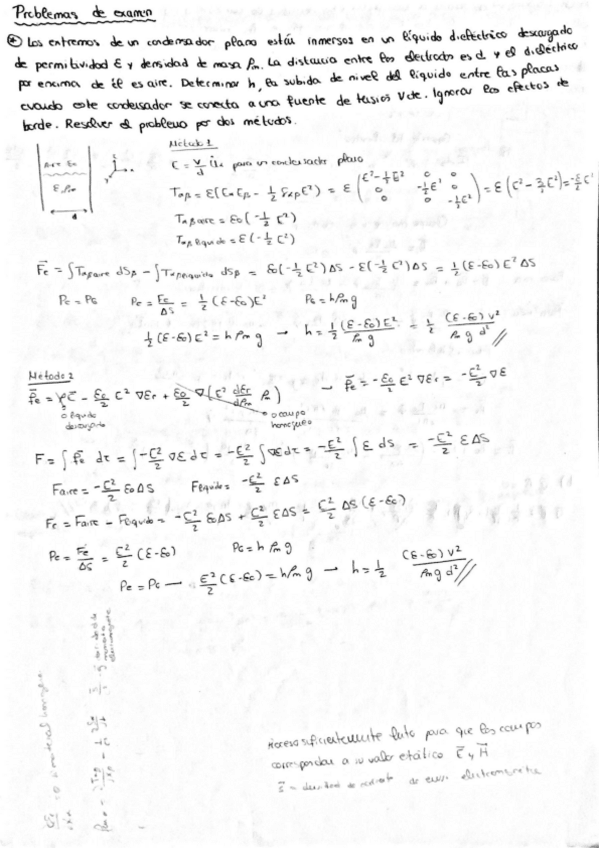 Problemas de examen
Los extremos de un condensador plano están inmersos en un líquido dieléctrico descargado
de permitividad ε y densidad de masa ρm. La distancia entre los electrodos es d y el dieléctrico
por encima de él es aire. Determinar h, la subida de nivel del líquido entre las placas
cuando este condensador se conecta a una fuente de tensión V cte. Ignorar los efectos de
borde. Resolver el problema por dos métodos.
Método 1
Aire ε0
ε, ρm
d
E = V/d para un condensador plano
Tαβ = ε(Eα Eβ - 1/2 δαβ E²) = ε (E² - 1/2 E² 0 0
0 -1/2 E² 0
0 0 -1/2 E²)
Tαβ aire = ε0 (-1/2 E²)
Tαβ líquido = ε (-1/2 E²)
Fe = ∫Tαβ aire dSβ - ∫Tαβ líquido dSβ = ε0(-1/2 E²) ΔS - ε(-1/2 E²) ΔS = 1/2 (ε-ε0) E² ΔS
Pe = PG Pe = Fe/ΔS = 1/2 (ε-ε0) E² PG = hρm g
1/2 (ε-ε0) E² = h ρm g → h = 1/2 (ε-ε0) E² / ρm g = 1/2 (ε-ε0) V² / ρm g d²
Método 2
fe = ρE - ε0/2 E² ∇εr + ε0/2 ∇(E² dεr/dρm ρm) → fe = -ε0/2 E² ∇εr = -E²/2 ∇ε
0 líquido
descargado
0 campo
homogéneo
F = ∫ fe dτ = ∫ -E²/2 ∇ε dτ = -E²/2 ∫ ∇ε dτ = -E²/2 ∫ ε dS = -E²/2 ε ΔS
Faire = -E²/2 ε0 ΔS Flíquido = -E²/2 ε ΔS
Fe = Faire - Flíquido = -E²/2 ε0 ΔS + E²/2 ε ΔS = E²/2 ΔS (ε-ε0)
Pe = Fe/ΔS = E²/2 (ε-ε0) PG = h ρm g
Pe = PG → E²/2 (ε-ε0) = hρm g → h = 1/2 (ε-ε0) V² / ρm g d²
suficientemente lento para que los campos
correspondan a su valor estático E y H